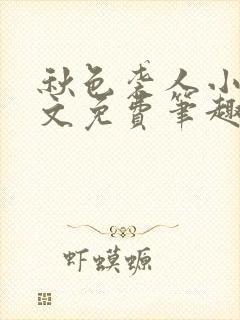 秋色袭人小
文免费笔趣
虾蟆螈